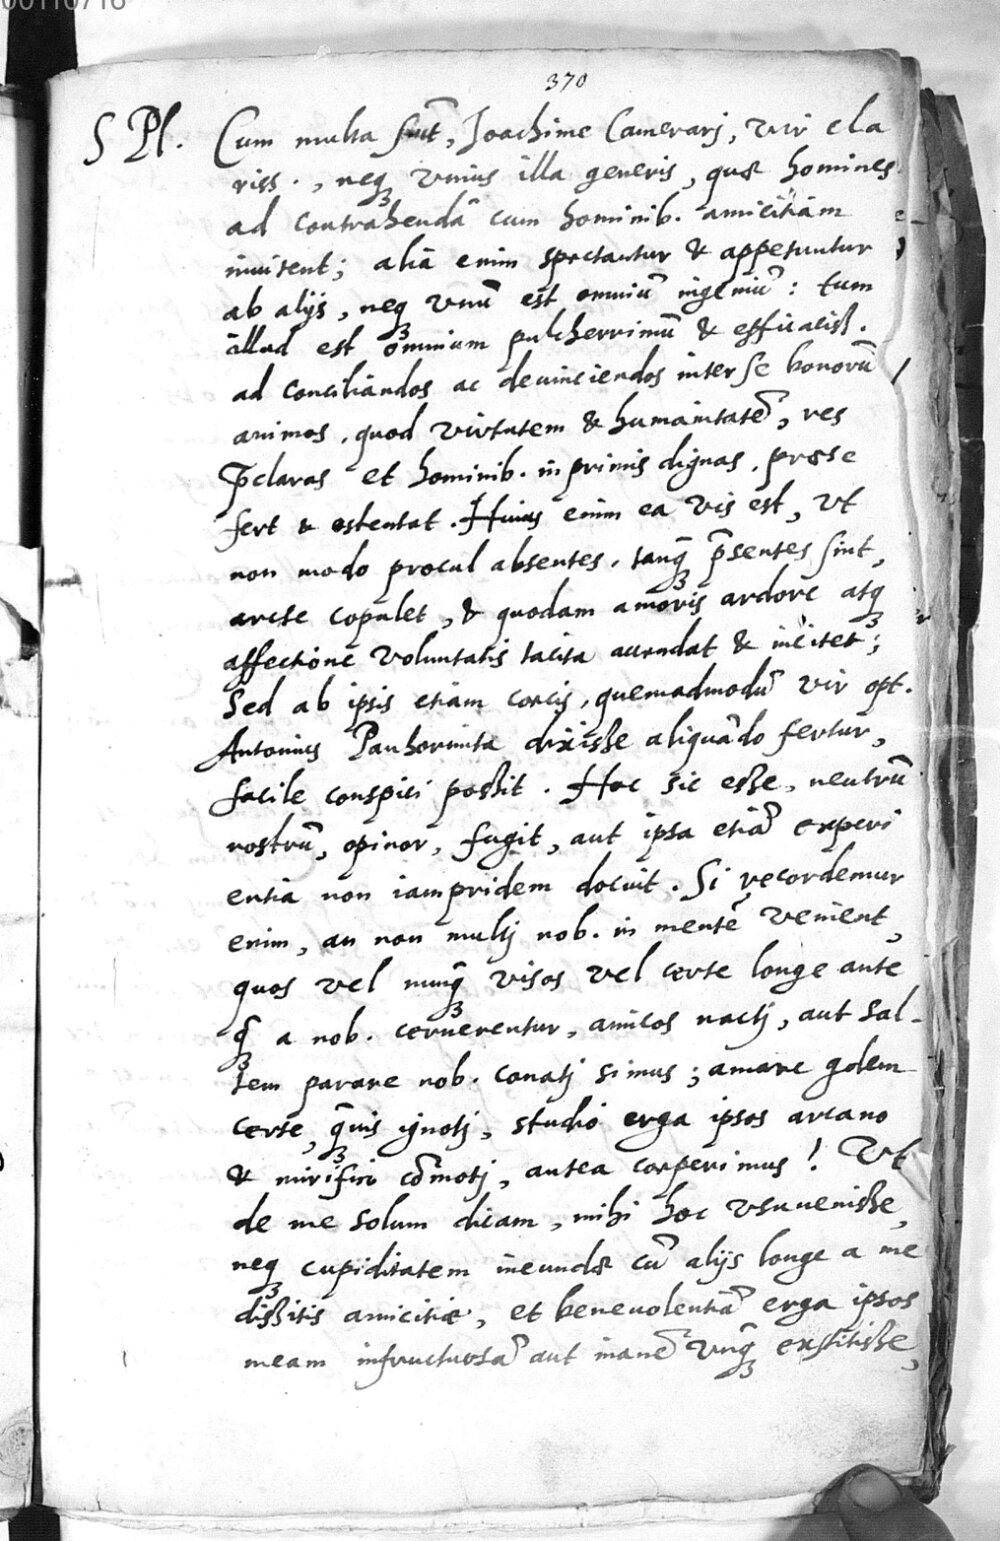 00110716
370
S Pl. Cum multa sint, Joachime Camerarj, vir cla
riss., neqꝫ vnius illa generis, quæ homines
ad contrahendā cum hominib. amicitiam
inuitent; alia enim spectantur & appetuntur
ab alijs, neqꝫ vnū est omniū ingeniū: tum
illud est omnium pulcherrimū & efficaciss.
ad conciliandos ac deuinciendos inter se bonorū
animos, quod virtutem & humanitatē, res
p̄claras et hominib. in primis dignas, præse
fert & ostentat. Huius enim ea vis est, vt
non modo procul absentes, tanqꝫ p̄sentes sint,
arcte copulet, & quodam amoris ardore atqꝫ
affectione voluntatis tacita accendat & incitet;
Sed ab ipsis etiam cæcis, quemadmodū vir opt.
Antonius Panhormita dixisse aliquādo fertur,
facile conspici possit. Hoc sic esse, neutrū
nostrū, opinor, fugit, aut ipsa etiā experi
entia non iampridem docuit. Si recordemur
enim, an non multj nob. in mentē venient,
quos vel nunqꝫ visos vel certe longe ante
qꝫ a nob. cernerentur, amicos nactj, aut sal-
tem parare nob. conatj simus; amare qdem
certe, qꝫuis ignotj, studio erga ipsos arcano
& mirifico cōmotj, antea cœperimus! Vt
de me solum dicam, mihi hoc vsuuenisse,
neqꝫ cupiditatem ineundæ cū alijs longe a me
dissitis amicitiæ, et beneuolentiā erga ipsos
meam infructuosā aut inanē vnqꝫ exstitisse,